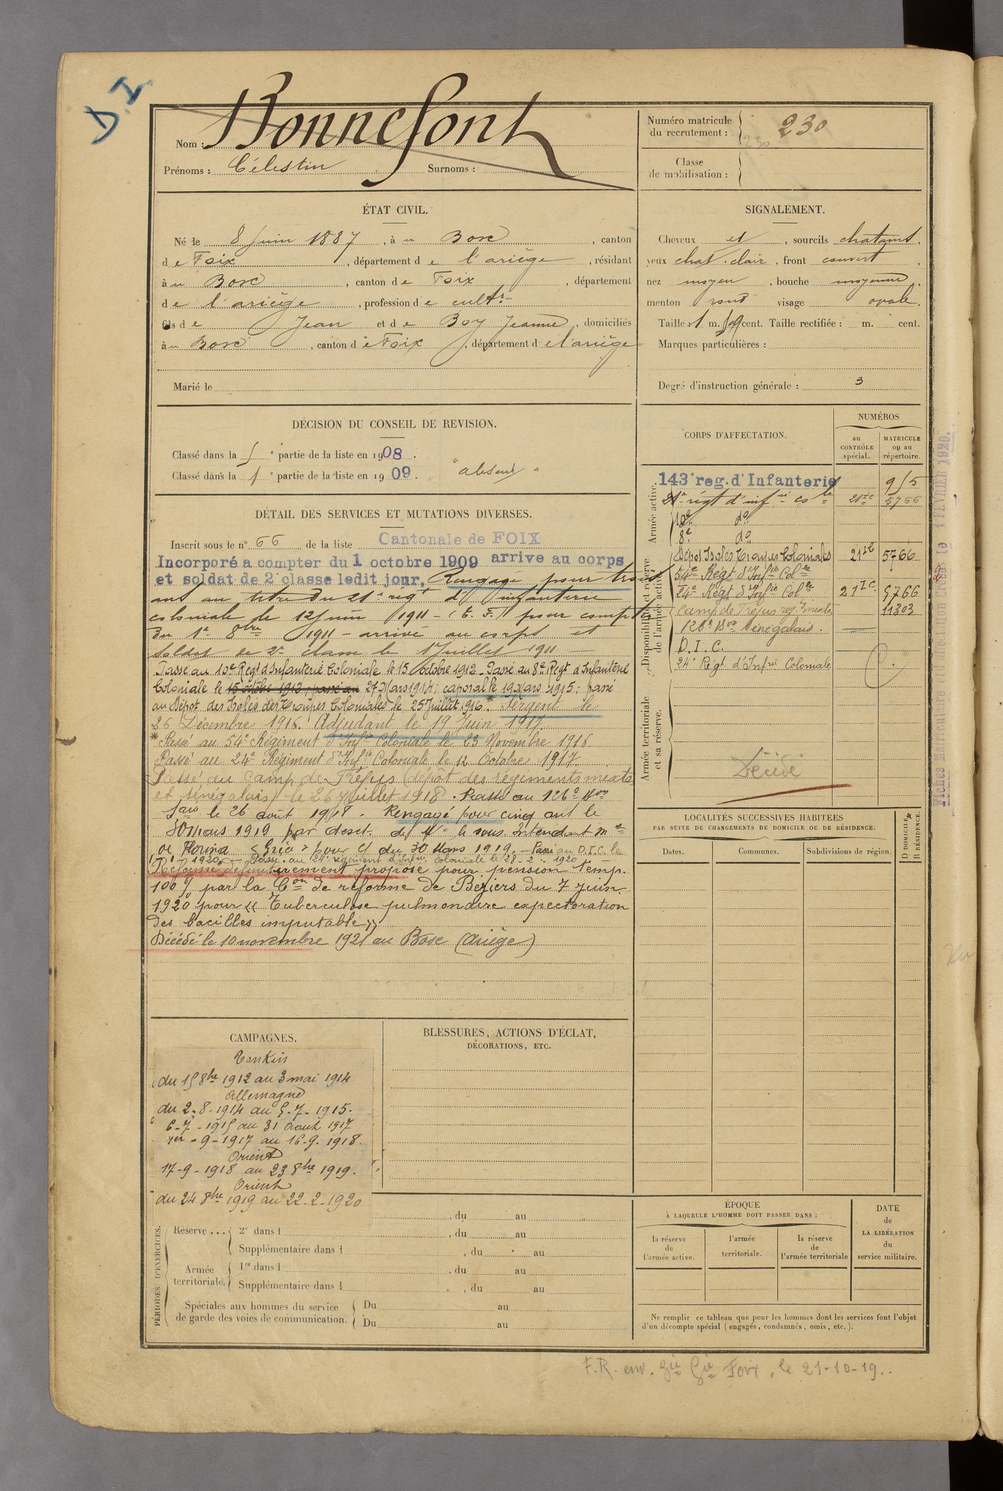 D.I
Nom : Bonnefont
Prénoms : Célestin Surnoms :
Numéro matricule
du recrutement : 230
Classe
de mobilisation :
ÉTAT CIVIL.
Né le 8 Juin 1887, à u Bosc, canton
d e Foix, département d e l'ariège, résidant
à u Bosc, canton d e Foix, département
d e l'ariège, profession d e cultr
fils d e Jean et d e Boy Jeanne, domiciliés
à u Bosc, canton d e Foix, département d e l'ariège
Marié le
SIGNALEMENT.
Cheveux et, sourcils chatains.
yeux chat. clair, front couvert
nez moyen, bouche moyenne
menton rond visage ovale.
Taille : 1 m. 59 cent. Taille rectifiée : m. cent.
Marques particulières :
Degré d'instruction générale : 3
DÉCISION DU CONSEIL DE REVISION.
Classé dans la 5e partie de la liste en 1908.
Classé dans la 1e partie de la liste en 1909. "absent"
DÉTAIL DES SERVICES ET MUTATIONS DIVERSES.
Inscrit sous le n° 66 de la liste Cantonale de FOIX
Incorporé a compter du 1 octobre 1909 arrive au corps
et soldat de 2e classe ledit jour, Rengagé pour trois
ans au titre du 21e régt d'infanterie
coloniale le 12 juin 1911 - E. F. pour compter
du 1er 8bre 1911 - arrivé au corps et
Soldat de 2e classe le 1 Juillet 1911 -
Passé au 10e Régt d'Infanterie Coloniale le 15 Octobre 1912. Passé au 8e Régt d'Infanterie
Coloniale le 15 octobre 1912 passé au 27 Mars 1914; caporal le 19 Mars 1915; passé
au Dépôt des Isolés des Troupes Coloniales le 25 Juillet 1916.* Sergent le
26 Décembre 1916. Adjudant le 19 Juin 1917
* Passé au 54e Régiment d'Infie Coloniale le 23 Novembre 1916
Passé au 24e Régiment d'Infie Coloniale le 12 Octobre 1917.
Passé au Camp de Fréjus (dépôt des régiments mixtes
et sénégalais) le 26 Juillet 1918. Passé au 126e Bon
Sgais le 26 août 1918. Rengagé pour cinq ans le
30 Mars 1919 par devt. de Mr le sous Intendant mre
de Florina "Grèce" pour C/ du 30 Mars 1919. - Passé au D.I.C. le
1920. - Passé au 24e régiment d'Infie Coloniale le 28-2-1920 -
Réformé définitivement proposé pour pension temp.
100% par la Con de réforme de Béziers du 7 juin
1920 pour "Tuberculose pulmonaire expectoration
des bacilles imputable"
Décédé le 10 novembre 1921 au Bosc (Ariège)
CORPS D'AFFECTATION.
NUMÉROS
au
CONTRÔLE
spécial.
MATRICULE
ou au
répertoire.
Armée active.
143e reg. d'Infanterie 915
21e régt d'infie cole 21ic 5766
10e do
8e do
Disponibilité et réserve
de l'armée active.
Dépôt Isolés Troupes Coloniales 21ic 5766
54e Régt d'Infie Colle
24e Régt d'Infie Colle 21IC 5766
Camp de Fréjus reg. mixte 11303
126e Bon Sénégalais.
D.I.C.
24e Régt d'Infie Coloniale
Armée territoriale
et sa réserve.
Décédé
LOCALITÉS SUCCESSIVES HABITÉES
PAR SUITE DE CHANGEMENTS DE DOMICILE OU DE RÉSIDENCE.
Dates.
Communes.
Subdivisions de région.
D DOMICILE.
R RÉSIDENCE.
CAMPAGNES.
Tonkin
du 15 8bre 1912 au 3 mai 1914
Allemagne
du 2-8-1914 au 5-7-1915.
6-7-1915 au 31 août 1917
1er-9-1917 au 16-9-1918.
Orient
17-9-1918 au 23 8bre 1919.
Orient
du 24 8bre 1919 au 22-2-1920
BLESSURES, ACTIONS D'ÉCLAT,
DÉCORATIONS, ETC.
PÉRIODES D'EXERCICES.
, du au
Réserve... 2e dans l , du au
Supplémentaire dans l , du au
Armée
territoriale.
1re dans l , du au
Supplémentaire dans l , du au
Spéciales aux hommes du service
de garde des voies de communication.
Du au
Du au
ÉPOQUE
À LAQUELLE L'HOMME DOIT PASSER DANS :
la réserve
de
l'armée active.
l'armée
territoriale.
la réserve
de
l'armée territoriale
DATE
de
LA LIBÉRATION
du
service militaire.
Ne remplir ce tableau que pour les hommes dont les services font l'objet
d'un décompte spécial (engagés, condamnés, omis, etc.).
F.R. env. Gie Foix, le 21-10-19..